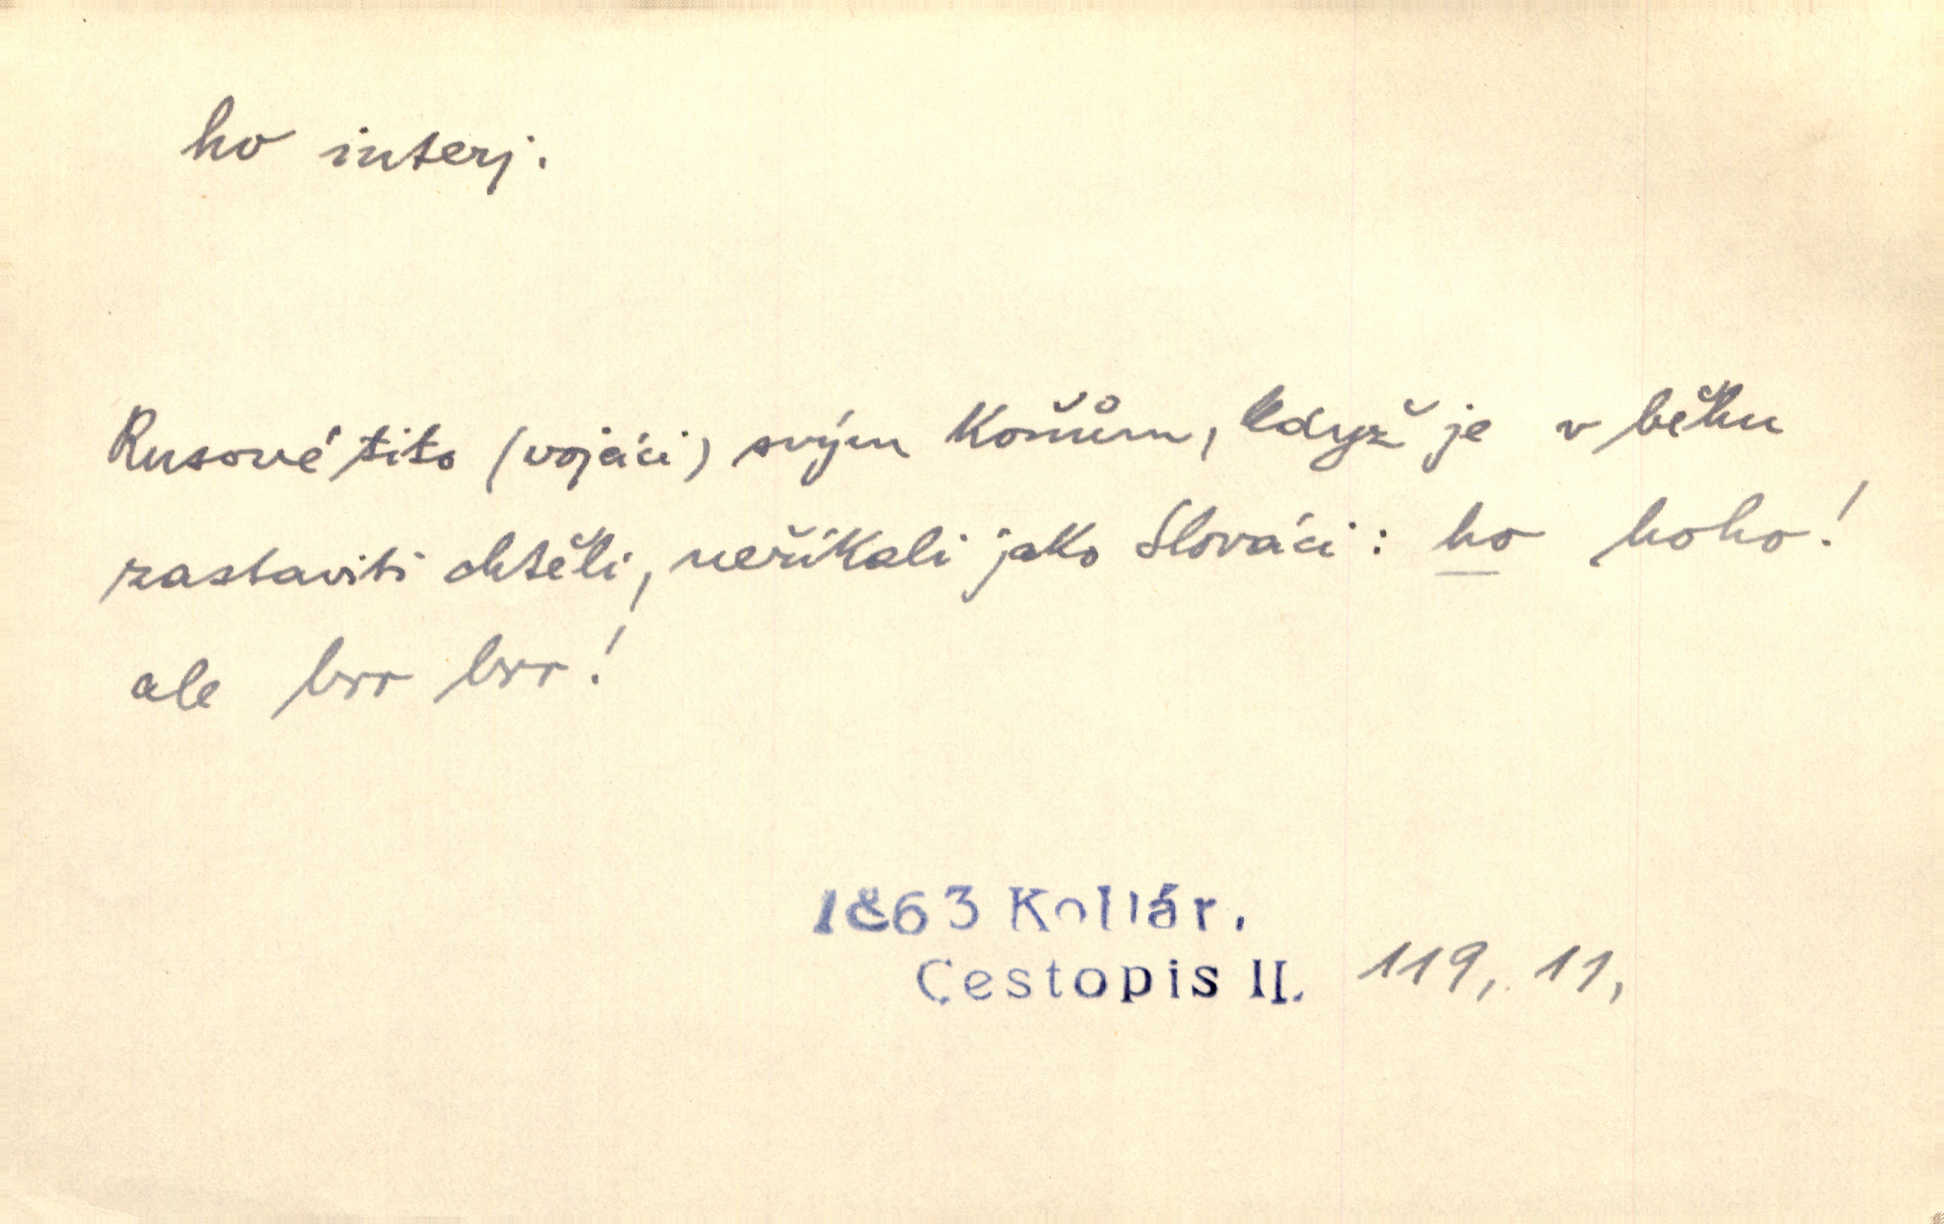 ho interj.
Rusové tito (vojáci) svým koňům, když je v běhu
zastaviti chtěli, neříkali jako Slováci: ho hoho!
ale brr brr!
1863 Kollár,
Cestopis II. 119, 11,